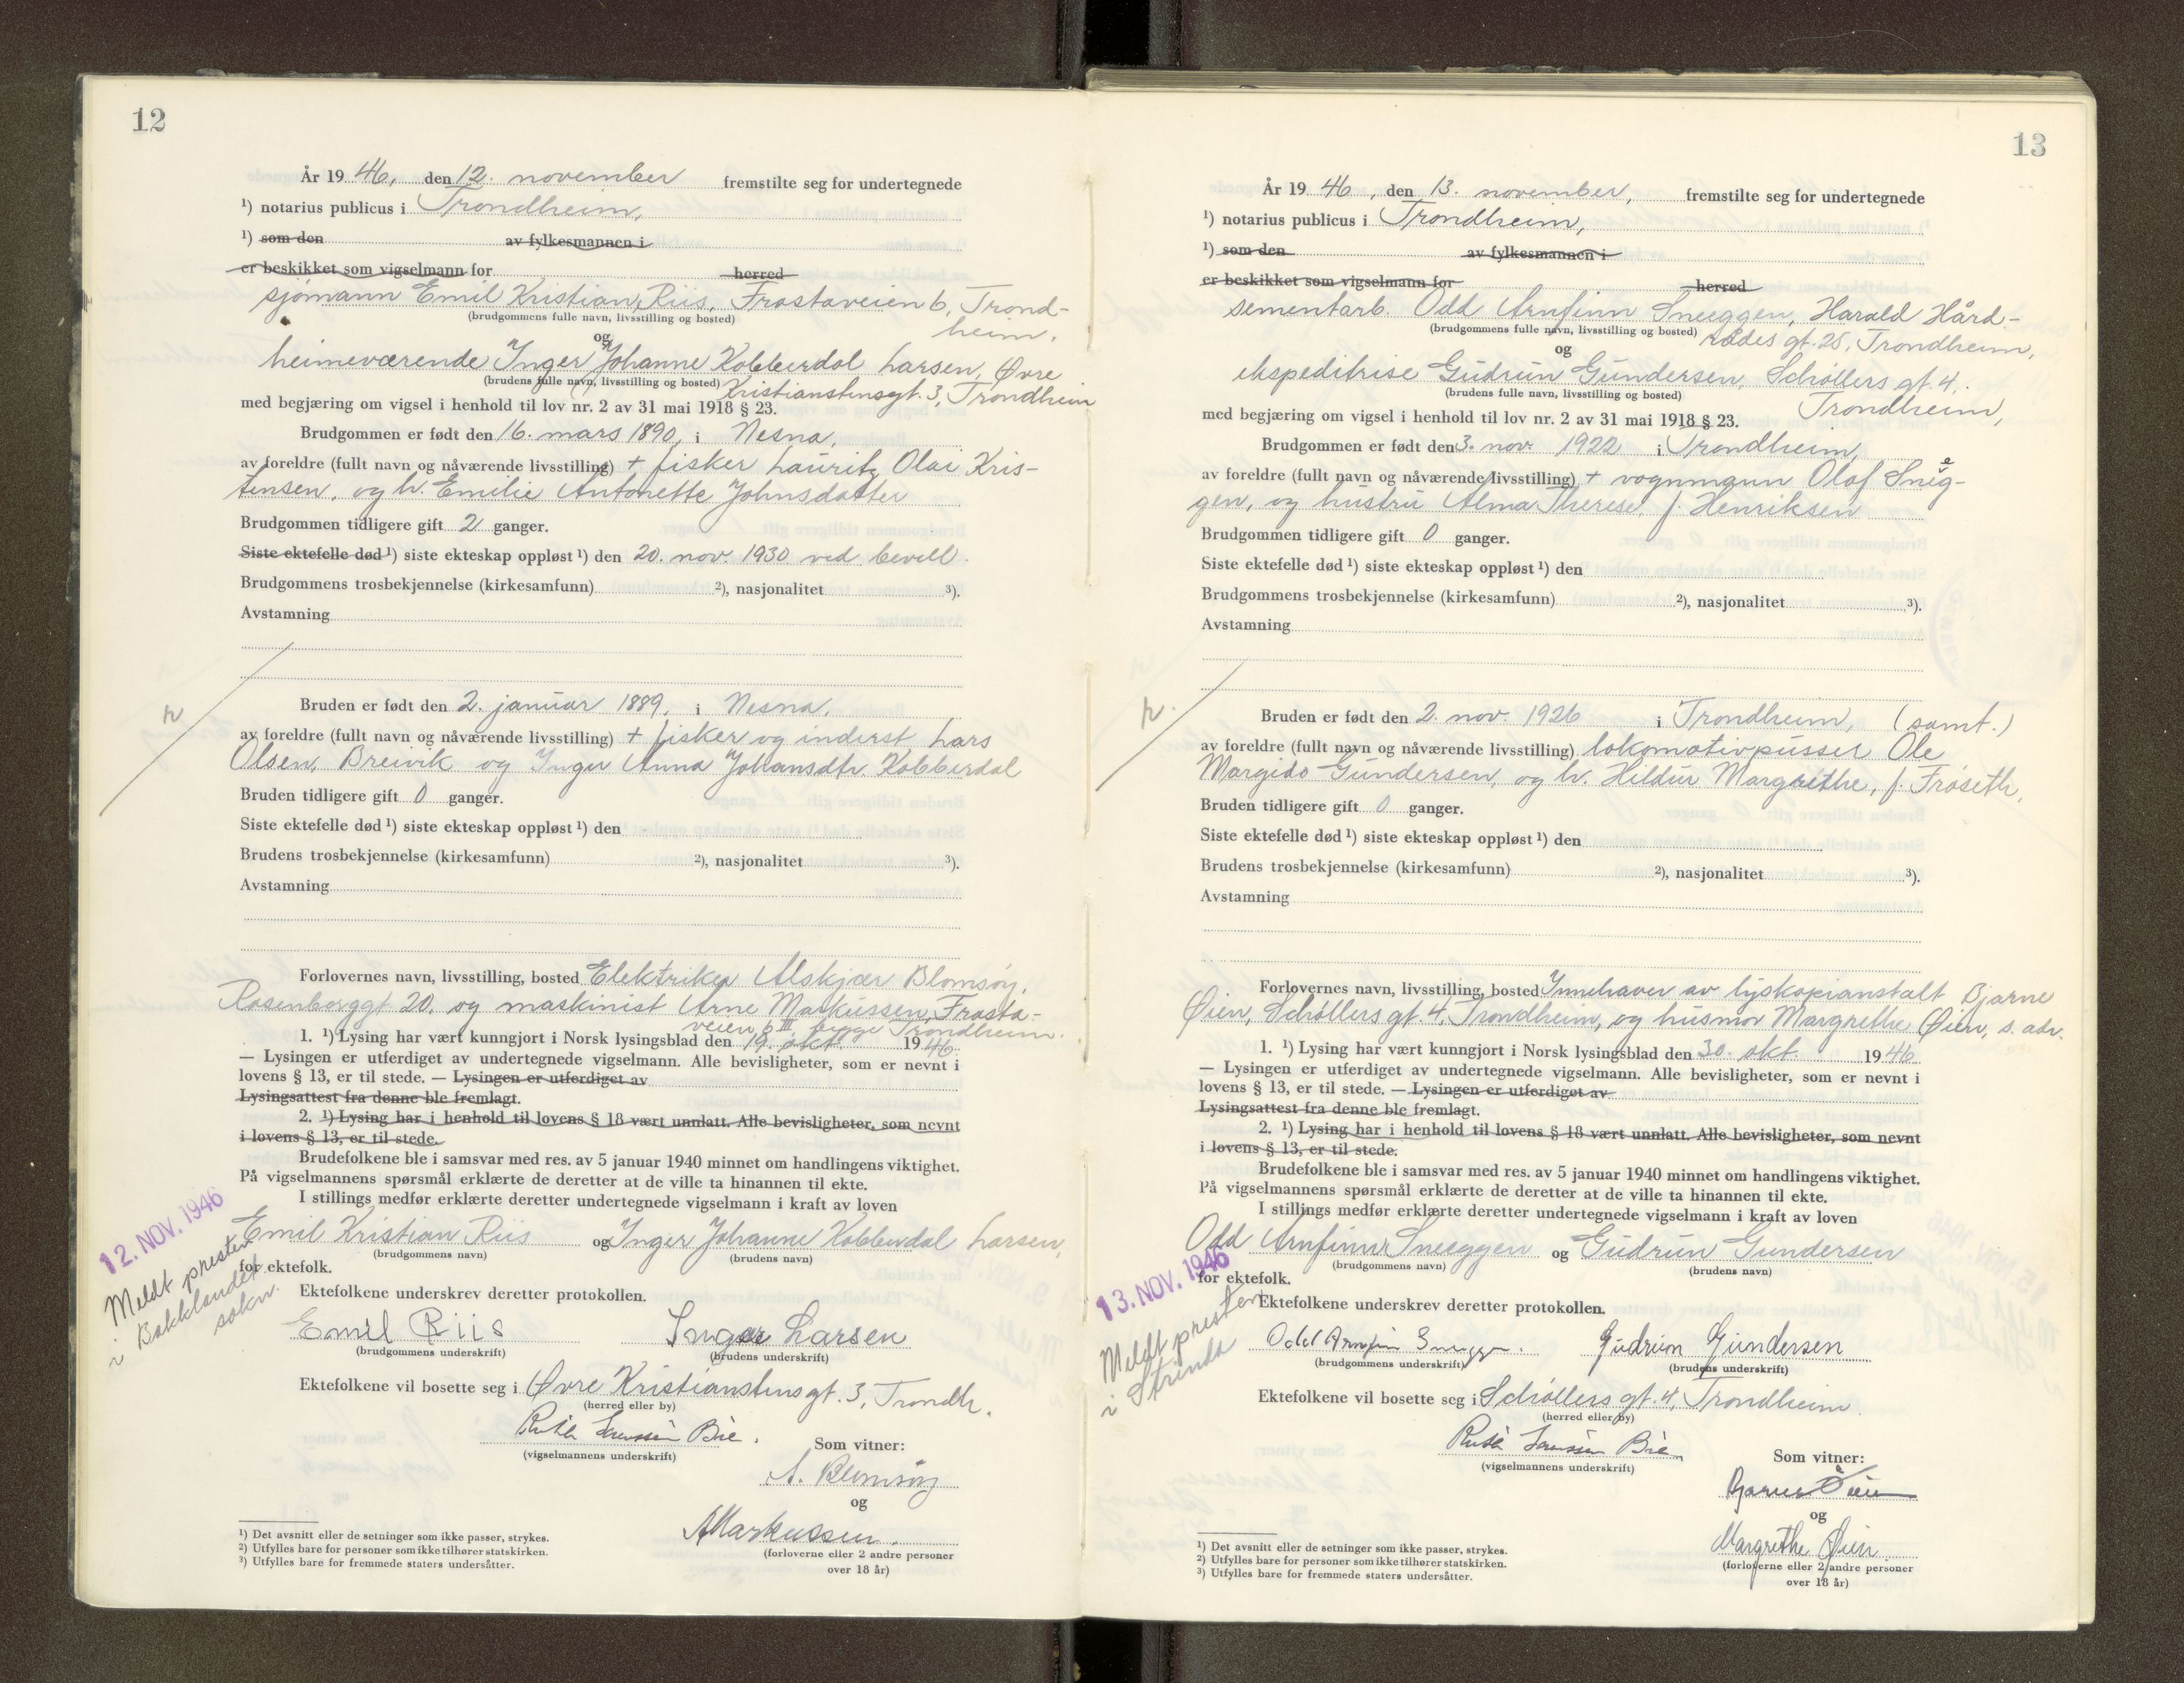 12
År 19 46, den 12. november fremstilte seg for undertegnede
¹) notarius publicus i Trondheim,
¹) som den av fylkesmannen i
er beskikket som vigselmann for herred
sjømann Emil Kristian Riis, Frostaveien 6, Trond-
(brudgommens fulle navn, livsstilling og bosted) heim.
og
heimeværende Inger Johanne Kobberdal Larsen, Øvre
(brudens fulle navn, livsstilling og bosted) Kristianstensgt. 3, Trondheim
med begjæring om vigsel i henhold til lov nr. 2 av 31 mai 1918 § 23.
Brudgommen er født den 16. mars 1890, i Nesna,
av foreldre (fullt navn og nåværende livsstilling) + fisker Lauritz Olai Kris-
tensen, og h. Emilie Antonette Johnsdatter
Brudgommen tidligere gift 2 ganger.
Siste ektefelle død ¹) siste ekteskap oppløst ¹) den 20. nov. 1930 ved bevill.
Brudgommens trosbekjennelse (kirkesamfunn) ²), nasjonalitet ³).
Avstamning
Bruden er født den 2. januar 1889, i Nesna,
av foreldre (fullt navn og nåværende livsstilling) + fisker og inderst Lars
Olsen Breivik og Inger Anna Johansdtr. Kobberdal
Bruden tidligere gift 0 ganger.
Siste ektefelle død ¹) siste ekteskap oppløst ¹) den
Brudens trosbekjennelse (kirkesamfunn) ²), nasjonalitet ³).
Avstamning
Forlovernes navn, livsstilling, bosted Elektriker Alskjær Blomsøy,
Rosenborggt 20, og maskinist Arne Markussen, Frosta-
veien 6 III, begge Trondheim.
1. ¹) Lysing har vært kunngjort i Norsk lysingsblad den 19. okt. 1946
— Lysingen er utferdiget av undertegnede vigselmann. Alle bevisligheter, som er nevnt i
lovens § 13, er til stede. — Lysingen er utferdiget av
Lysingsattest fra denne ble fremlagt.
2. ¹) Lysing har i henhold til lovens § 18 vært unnlatt. Alle bevisligheter, som nevnt
i lovens § 13, er til stede.
Brudefolkene ble i samsvar med res. av 5 januar 1940 minnet om handlingens viktighet.
På vigselmannens spørsmål erklærte de deretter at de ville ta hinannen til ekte.
I stillings medfør erklærte deretter undertegnede vigselmann i kraft av loven
12. NOV. 1946
Emil Kristian Riis og Inger Johanne Kobberdal Larsen,
(brudgommens navn) (brudens navn)
for ektefolk.
Meldt presten
i Bakklandet
sokn.
Ektefolkene underskrev deretter protokollen.
Emil Riis Inger Larsen
(brudgommens underskrift) (brudens underskrift)
Ektefolkene vil bosette seg i Øvre Kristianstensgt. 3, Trondh.
(herred eller by)
Ruth Bie.
(vigselmannens underskrift) Som vitner:
A. Blomsøy
og
A Markussen.
(forloverne eller 2 andre personer
over 18 år)
¹) Det avsnitt eller de setninger som ikke passer, strykes.
²) Utfylles bare for personer som ikke tilhører statskirken.
³) Utfylles bare for fremmede staters undersåtter.
13
År 19 46, den 13. november, fremstilte seg for undertegnede
¹) notarius publicus i Trondheim,
¹) som den av fylkesmannen i
er beskikket som vigselmann for herred
sementarb. Odd Arnfinn Sneeggen, Harald Hård-
(brudgommens fulle navn, livsstilling og bosted) rådes gt. 25, Trondheim,
og
ekspeditrise Gudrun Gundersen, Schøllers gt. 4,
(brudens fulle navn, livsstilling og bosted) Trondheim,
med begjæring om vigsel i henhold til lov nr. 2 av 31 mai 1918 § 23.
Brudgommen er født den 3. nov. 1922 i Trondheim,
av foreldre (fullt navn og nåværende livsstilling) + vognmann Olaf Sneeg-
gen, og hustru Alma Therese, f. Henriksen
Brudgommen tidligere gift 0 ganger.
Siste ektefelle død ¹) siste ekteskap oppløst ¹) den
Brudgommens trosbekjennelse (kirkesamfunn) ²), nasjonalitet ³).
Avstamning
Bruden er født den 2. nov. 1926 i Trondheim, (samt.)
av foreldre (fullt navn og nåværende livsstilling) lokomotivpusser Ole
Margido Gundersen, og h. Hildur Margrethe, f. Frøseth,
Bruden tidligere gift 0 ganger.
Siste ektefelle død ¹) siste ekteskap oppløst ¹) den
Brudens trosbekjennelse (kirkesamfunn) ²), nasjonalitet ³).
Avstamning
Forlovernes navn, livsstilling, bosted Innehaver av lyskopianstalt Bjarne
Øien, Schøllers gt. 4, Trondheim, og husmor Margrethe Øien, s. adr.
1. ¹) Lysing har vært kunngjort i Norsk lysingsblad den 30. okt. 1946
— Lysingen er utferdiget av undertegnede vigselmann. Alle bevisligheter, som er nevnt i
lovens § 13, er til stede. — Lysingen er utferdiget av
Lysingsattest fra denne ble fremlagt.
2. ¹) Lysing har i henhold til lovens § 18 vært unnlatt. Alle bevisligheter, som nevnt
i lovens § 13, er til stede.
Brudefolkene ble i samsvar med res. av 5 januar 1940 minnet om handlingens viktighet.
På vigselmannens spørsmål erklærte de deretter at de ville ta hinannen til ekte.
I stillings medfør erklærte deretter undertegnede vigselmann i kraft av loven
Odd Arnfinn Sneeggen og Gudrun Gundersen
(brudgommens navn) (brudens navn)
13. NOV. 1946
for ektefolk.
Meldt presten
i Strinda
Ektefolkene underskrev deretter protokollen.
Odd Arnfinn Sneeggen. Gudrun Gundersen
(brudgommens underskrift) (brudens underskrift)
Ektefolkene vil bosette seg i Schøllers gt. 4, Trondheim.
(herred eller by)
Ruth Bie
(vigselmannens underskrift) Som vitner:
Bjarne Øien
og
Margrethe Øien
(forloverne eller 2 andre personer
over 18 år)
¹) Det avsnitt eller de setninger som ikke passer, strykes.
²) Utfylles bare for personer som ikke tilhører statskirken.
³) Utfylles bare for fremmede staters undersåtter.